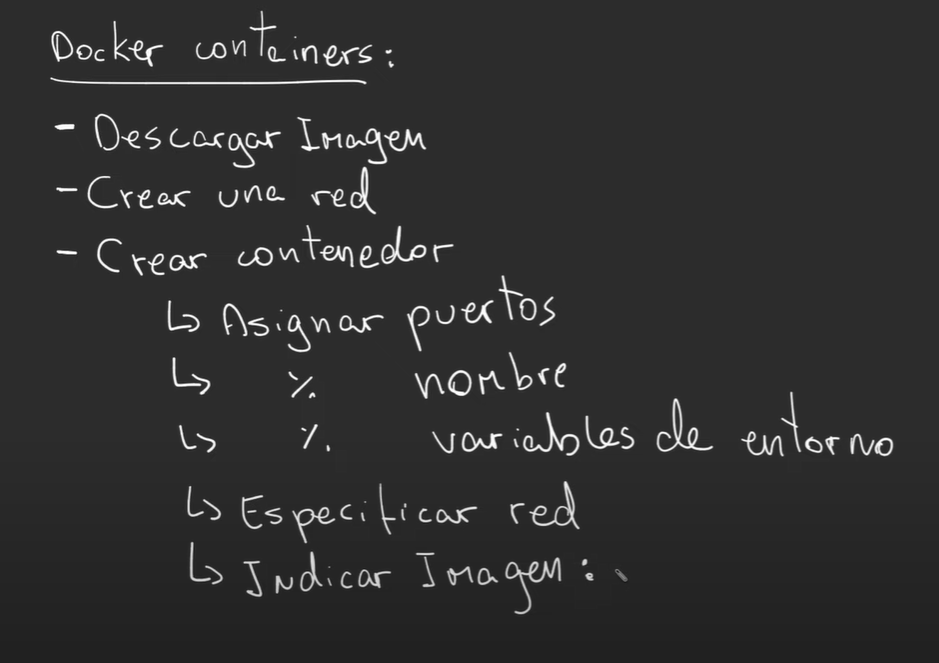 Docker containers:
- Descargar Imagen
- Crear una red
- Crear contenedor
↳ Asignar puertos
↳ ⁒ nombre
↳ ⁒ variables de entorno
↳ Especificar red
↳ Indicar Imagen: